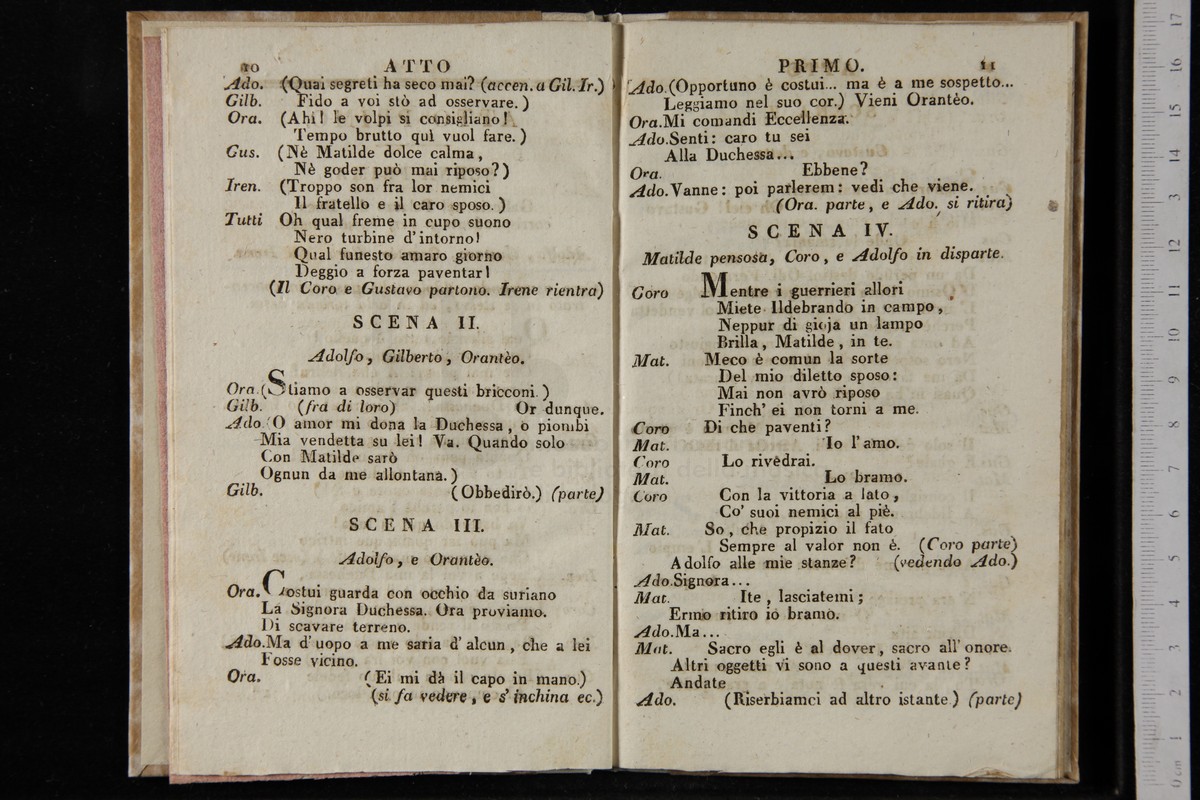 10 ATTO
Ado. (Quai segreti ha seco mai? (accen. a Gil. Ir.)
Gilb. Fido a voi stò ad osservare.)
Ora. (Ahi! le volpi si consigliano!
Tempo brutto quì vuol fare.)
Gus. (Nè Matilde dolce calma,
Nè goder può mai riposo?)
Iren. (Troppo son fra lor nemici
Il fratello e il caro sposo.)
Tutti Oh qual freme in cupo suono
Nero turbine d'intorno!
Qual funesto amaro giorno
Deggio a forza paventar!
(Il Coro e Gustavo partono. Irene rientra)
SCENA II.
Adolfo, Gilberto, Orantèo.
Ora. (Stiamo a osservar questi bricconi.)
Gilb. (fra di loro) Or dunque.
Ado. (O amor mi dona la Duchessa, o piombi
Mia vendetta su lei! Va. Quando solo
Con Matilde sarò
Ognun da me allontana.)
Gilb. (Obbedirò.) (parte)
SCENA III.
Adolfo, e Orantèo.
Ora. Costui guarda con occhio da suriano
La Signora Duchessa. Ora proviamo.
Di scavare terreno.
Ado. Ma d'uopo a me saria d'alcun, che a lei
Fosse vicino.
Ora. (Ei mi dà il capo in mano.)
(si fa vedere, e s'inchina ec.)
PRIMO. 11
Ado. (Opportuno è costui... ma è a me sospetto...
Leggiamo nel suo cor.) Vieni Orantèo.
Ora. Mi comandi Eccellenza.
Ado. Senti: caro tu sei
Alla Duchessa...
Ora. Ebbene?
Ado. Vanne: poi parlerem: vedi che viene.
(Ora. parte, e Ado. si ritira)
SCENA IV.
Matilde pensosa, Coro, e Adolfo in disparte.
Coro Mentre i guerrieri allori
Miete Ildebrando in campo,
Neppur di gioja un lampo
Brilla, Matilde, in te.
Mat. Meco è comun la sorte
Del mio diletto sposo:
Mai non avrò riposo
Finch' ei non torni a me.
Coro Di che paventi?
Mat. Io l'amo.
Coro Lo rivedrai.
Mat. Lo bramo.
Coro Con la vittoria a lato,
Co' suoi nemici al piè.
Mat. So, che propizio il fato
Sempre al valor non è. (Coro parte)
Adolfo alle mie stanze? (vedendo Ado.)
Ado. Signora...
Mat. Ite, lasciatemi;
Ermo ritiro io bramo.
Ado. Ma...
Mat. Sacro egli è al dover, sacro all'onore.
Altri oggetti vi sono a questi avante?
Andate
Ado. (Riserbiamci ad altro istante.) (parte)
17
16
15
14
13
12
11
10
9
8
7
6
5
4
3
2
1
0 cm